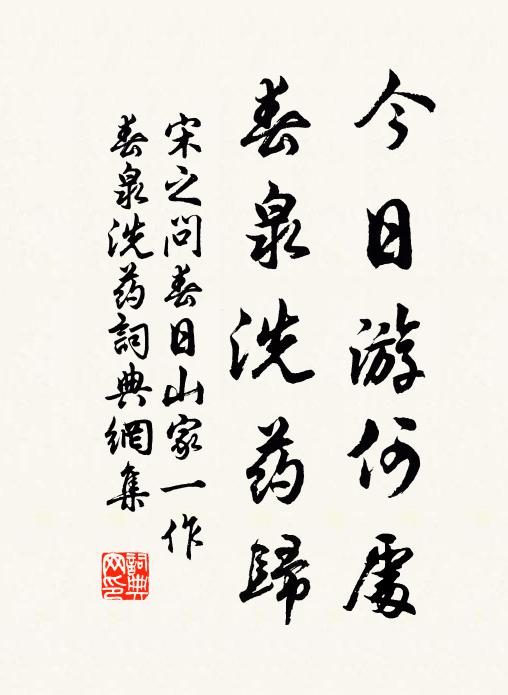 今日游何處
春泉洗药歸
宋之问春日山家一作
春泉洗药詞典網集
詞典网印